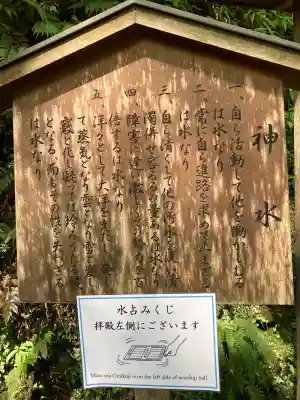 神水
一、自ら活動して他を働かしむる
は水なり
二、常に自ら進路を求めて止まざる
は水なり
三、自ら清くして他の汚水を洗い清
濁併せ容るるの量あるは水なり
四、障害に逢い激しくその勢力を百
倍するは水なり
五、洋々として大洋を充たし発し
て蒸気となり雲となり雪と変じ
霰と化し凝っては玲瓏たる鏡
となる而もその性を失わざる
は水なり
水占みくじ
拝殿左側にございます
Mizu-ura Omikuji is on the left side of worship hall.